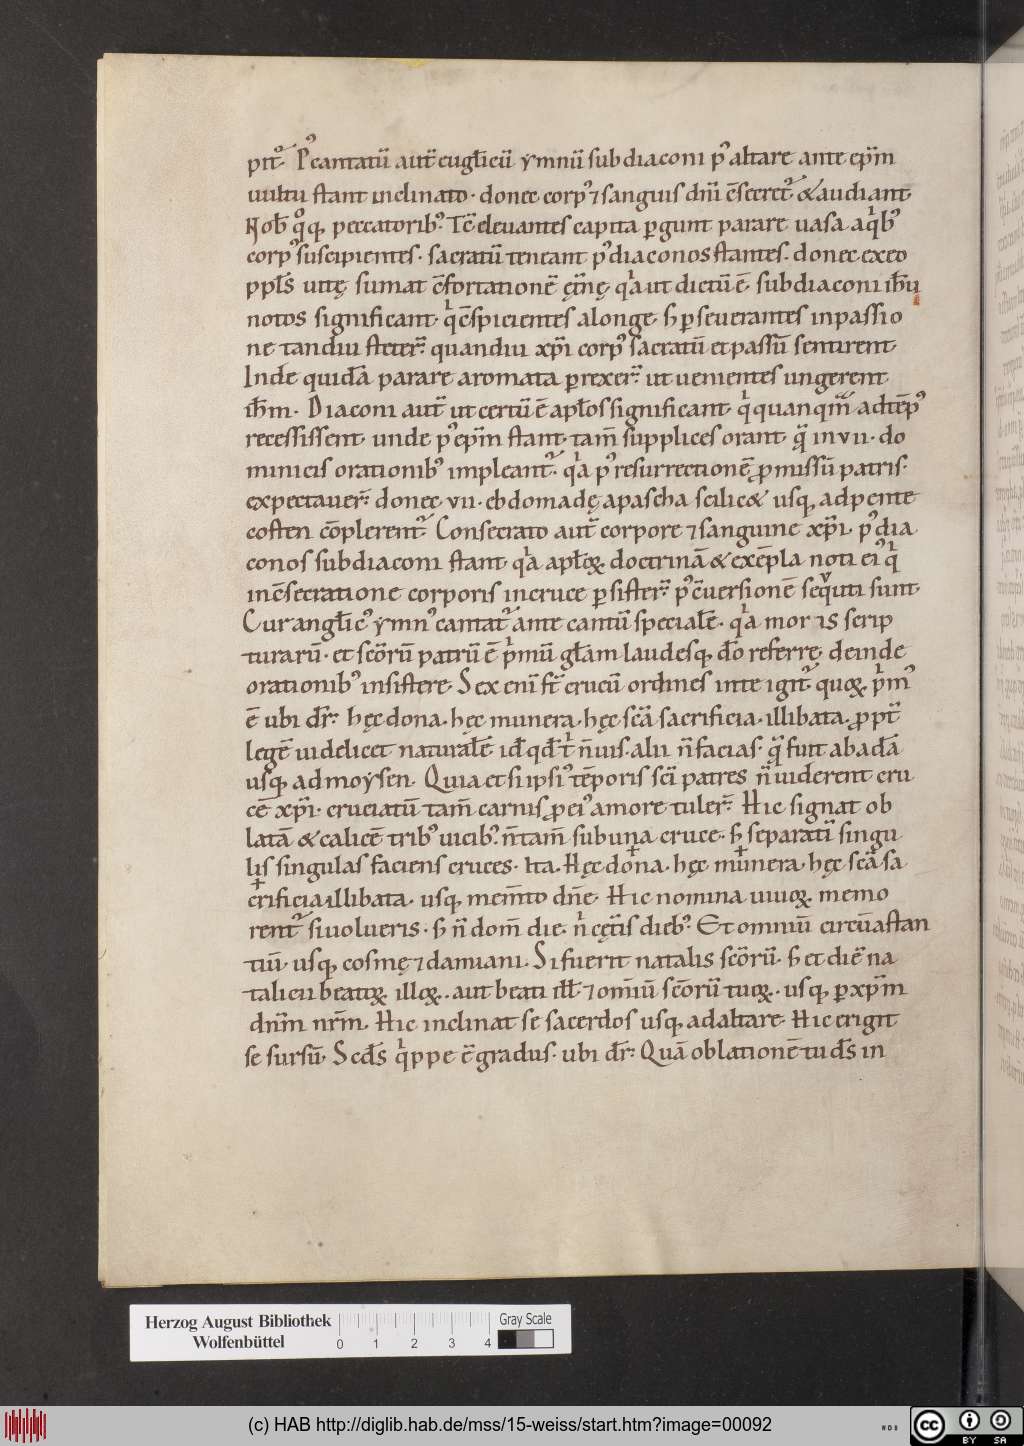 pit᷒. P᷒cantatū aut̄ euglicū ẏmnū subdiaconi p᷒ altare ante ep̄m
uultu stant inclinato· donec corp᷒ ⁊ sanguis dn̄i c̄secret᷒. & audiant
Nob̄ q̊q; peccatorib᷒. Tc̄ eleuantes capita ꝑgunt parare uasa aqͥb᷒
corp᷒ suscipientes· sacratū teneant p᷒ diaconos stantes· donec exeo
ppl̄s uitę sumat c̄fortationē ęt̄nę· qͥa ut dictū ē subdiaconi ih̄u
notos significant· qͥ c̄spicientes alonge· s; ꝑseuerantes inpassio
ne tandiu steter̄ quandiu xp̄i corp᷒ sacratū et passū sentirent·
Inde quidā parare aromata ꝑrexer̄ ut uenientes ungerent
ih̄m. Diaconi aut̄ ut certū ē apl̄os significant· qͥ quanqͫ adtēp᷒
recessissent· unde p᷒ ep̄m stant· tam̄ supplices orant· qͣ in vii· do
minicis orationib᷒ impleant᷒· qͥa p᷒ resurrectionē ꝓmissū patris·
expectauer̄ donec· vii· ebdomadę apascha scilic& usq; adpente
costen cōplerent᷒. Consecrato aut̄ corpore ⁊ sanguine xp̄i· p᷒ dia
conos subdiaconi stant· qͥa apl̄oꝝ doctrinā & exēpla noti ei᷒ qͥ
inc̄secratione corporis incruce ꝑsister̄ p᷒ c̄uersionē seqͧuti sunt·
Cur angl̄ic᷒ ẏmn᷒ cantat᷒ ante cantū specialē· qͥa mor is scrip
turarū· et scōrū patrū ē pͥmū gl̄am laudesq; dō referre· deinde
orationib᷒ insistere· Sex eni ft̄ crucū ordines inte igit᷒ quoꝝ pͥm᷒
ē ubi dr̄: hęc dona· hęc munera· hęc scā sacrificia· illibata· ꝓpt̄
legē uidelicet naturalē id̄ qd̄ tͥ n̄ uis· alii n̄ facias· qͣ fuit abadā
usq; ad moẏsen. Quia et si ipsi᷒ tēporis sc̄i patres n̄ uiderent cru
cē xp̄i· cruciatū tam̄ carnis ꝓ ei᷒ amore tuler̄. Hic signat ob
latā & calicē trib᷒ uicib᷒. n̄tam̄ sub una cruce· s; separati singu
lis singulas faciens cruces· Ita. Hęc do+na· hęc mu+nera· hęc scā sa
+crificia illibata· usq; mem̄to dn̄e· Hic nomina uiuoꝝ memo
rent᷒ si uolueris· s; n̄ dom̄ die· n̄ cęt̄is dieb᷒. Et omniū circūastan
tiū· usq; cosmę ⁊ damiani. Si fuerit natalis scōrū· s; et diē na
talicii beatoꝝ illoꝝ· aut beati ill̄ ⁊ om̄iū scōrū tuoꝝ· usq; ꝑ xp̄m
dnm̄ nr̄m. Hic inclinat se sacerdos usq; ad altare. Hic erigit
se sursū. Scd̄s qͥppe ē gradus· ubi dr̄: Quā oblationē tu ds̄ in
Herzog August Bibliothek
Wolfenbüttel
0 1 2 3 4
Gray Scale
(c) HAB http://diglib.hab.de/mss/15-weiss/start.htm?image=00092
cc BY SA